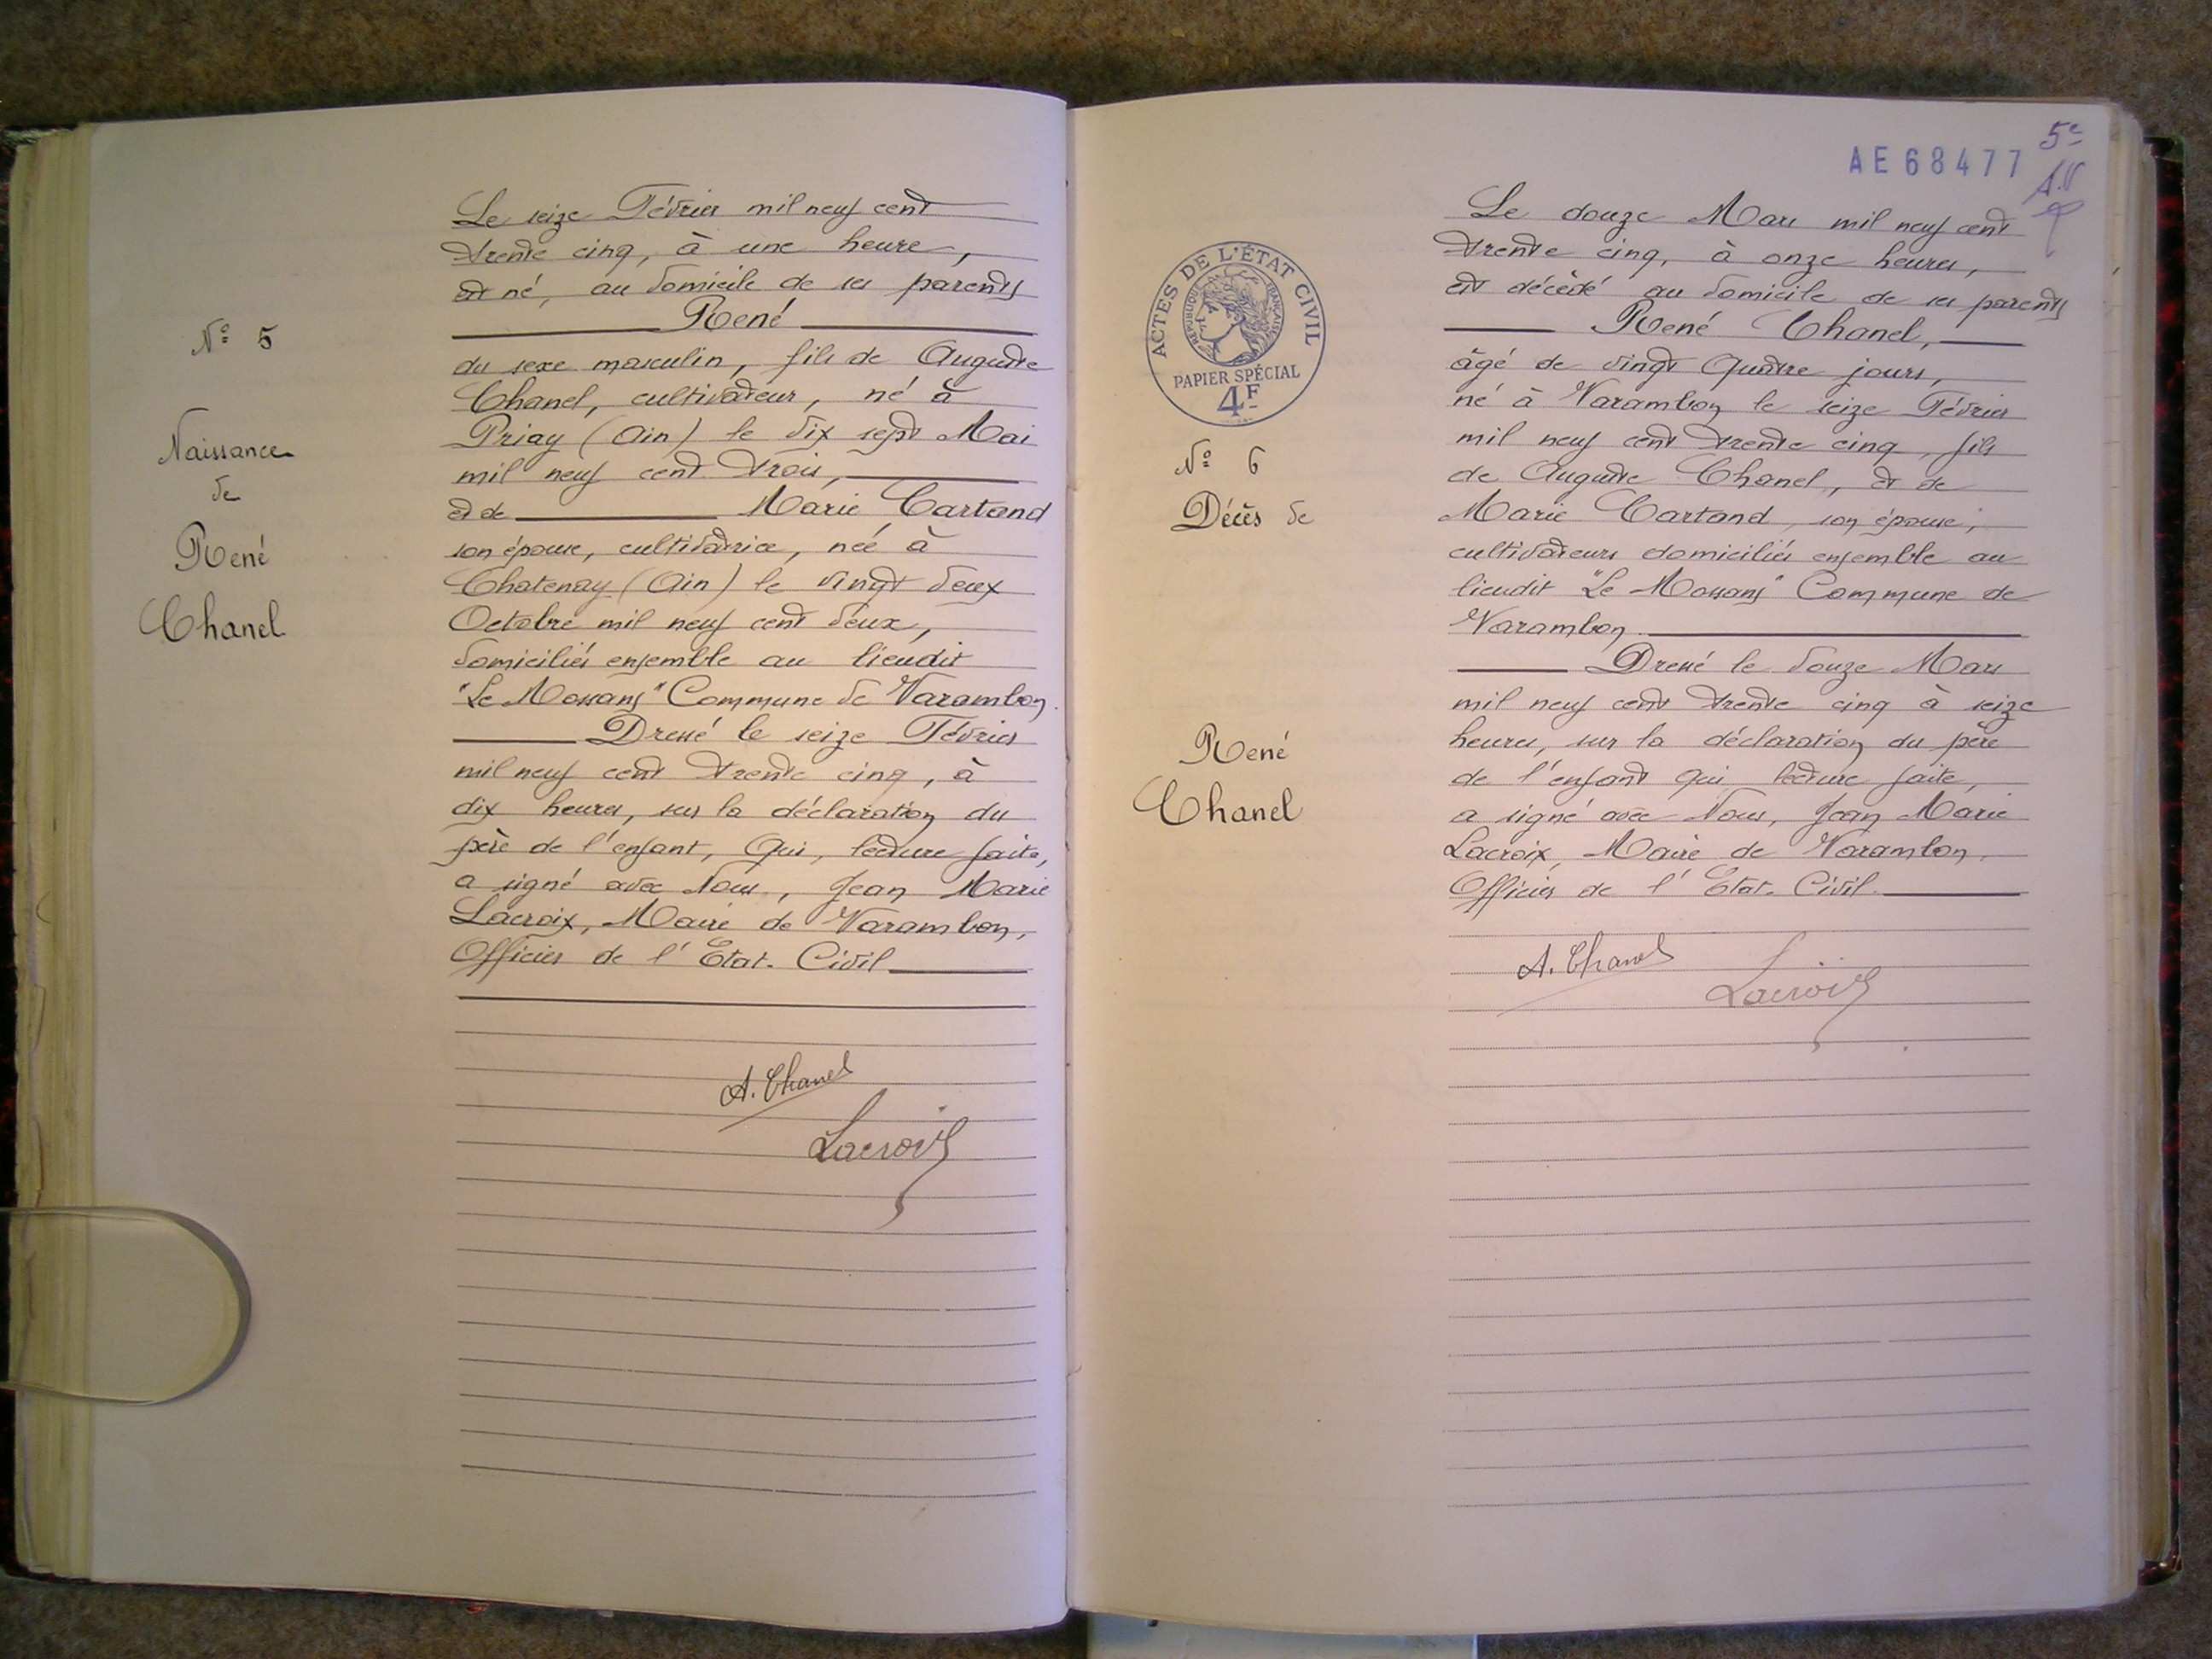 N° 5
Naissance
de
René
Chanel
Le seize Février mil neuf cent
trente cinq, à une heure,
est né, au domicile de ses parents
René
du sexe masculin, fils de Auguste
Chanel, cultivateur, né à
Priay (Ain) le dix sept Mai
mil neuf cent trois,
et de Marie Cartand
son épouse, cultivatrice, née à
Chatenay (Ain) le vingt deux
Octobre mil neuf cent deux,
domiciliés ensemble au lieudit
"Le Mossans" Commune de Varambon.
Dressé le seize Février
mil neuf cent trente cinq, à
dix heures, sur la déclaration du
père de l'enfant, qui, lecture faite,
a signé avec Nous, Jean Marie
Lacroix, Maire de Varambon,
Officier de l'Etat-Civil
A. Chanel
Lacroix
AE68477
5e
ACTES DE L'ÉTAT CIVIL
RÉPUBLIQUE FRANÇAISE
PAPIER SPÉCIAL
4F
N° 6
Décès de
René
Chanel
Le douze Mars mil neuf cent
trente cinq, à onze heures,
est décédé au domicile de ses parents
René Chanel,
âgé de vingt quatre jours,
né à Varambon le seize Février
mil neuf cent trente cinq, fils
de Auguste Chanel, et de
Marie Cartand, son épouse,
cultivateurs domiciliés ensemble au
lieudit "Le Mossans" Commune de
Varambon.
Dressé le douze Mars
mil neuf cent trente cinq à seize
heures, sur la déclaration du père
de l'enfant qui, lecture faite,
a signé avec Nous, Jean Marie
Lacroix, Maire de Varambon,
Officier de l'Etat-Civil.
A. Chanel
Lacroix